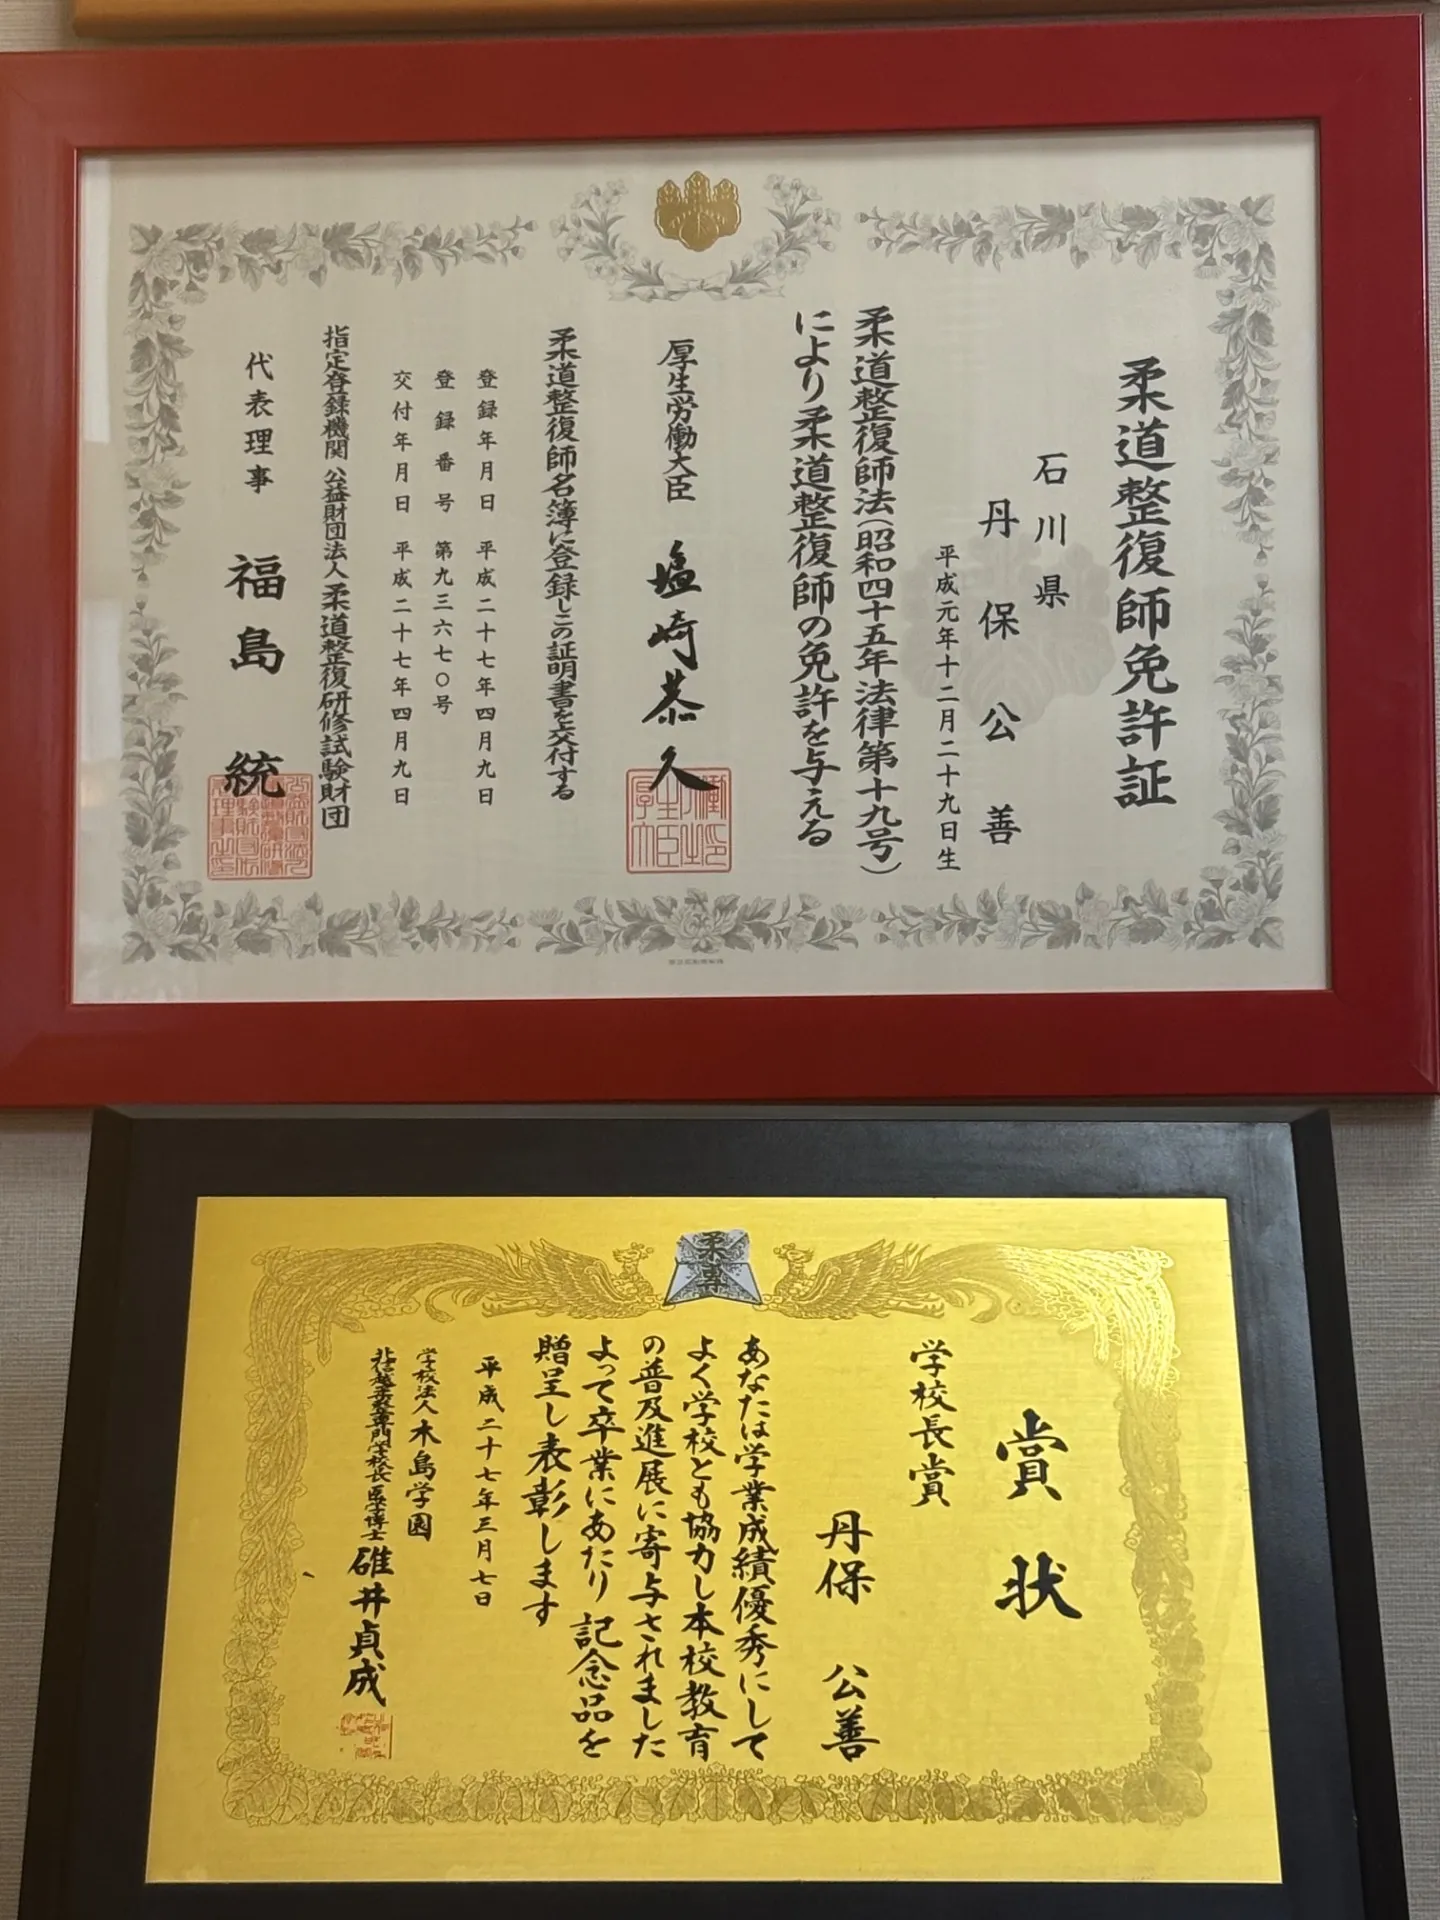 柔道整復師免許証
石川県
丹保公善
平成元年十二月二十九日生
柔道整復師法(昭和四十五年法律第十九号)
により柔道整復師の免許を与える
厚生労働大臣 塩崎恭久
柔道整復師名簿に登録しこの証明書を交付する
登録年月日 平成二十七年四月九日
登録番号 第九三六七〇号
交付年月日 平成二十七年四月九日
指定登録機関 公益財団法人 柔道整復研修試験財団
代表理事 福島統
柔専
賞状
学校長賞
丹保 公善
あなたは学業成績優秀にして
よく学校とも協力し本校教育
の普及進展に寄与されました
よって卒業にあたり記念品を
贈呈し表彰します
平成二十七年三月七日
学校法人 木島学園
北信越柔整専門学校長 医学博士 碓井貞成